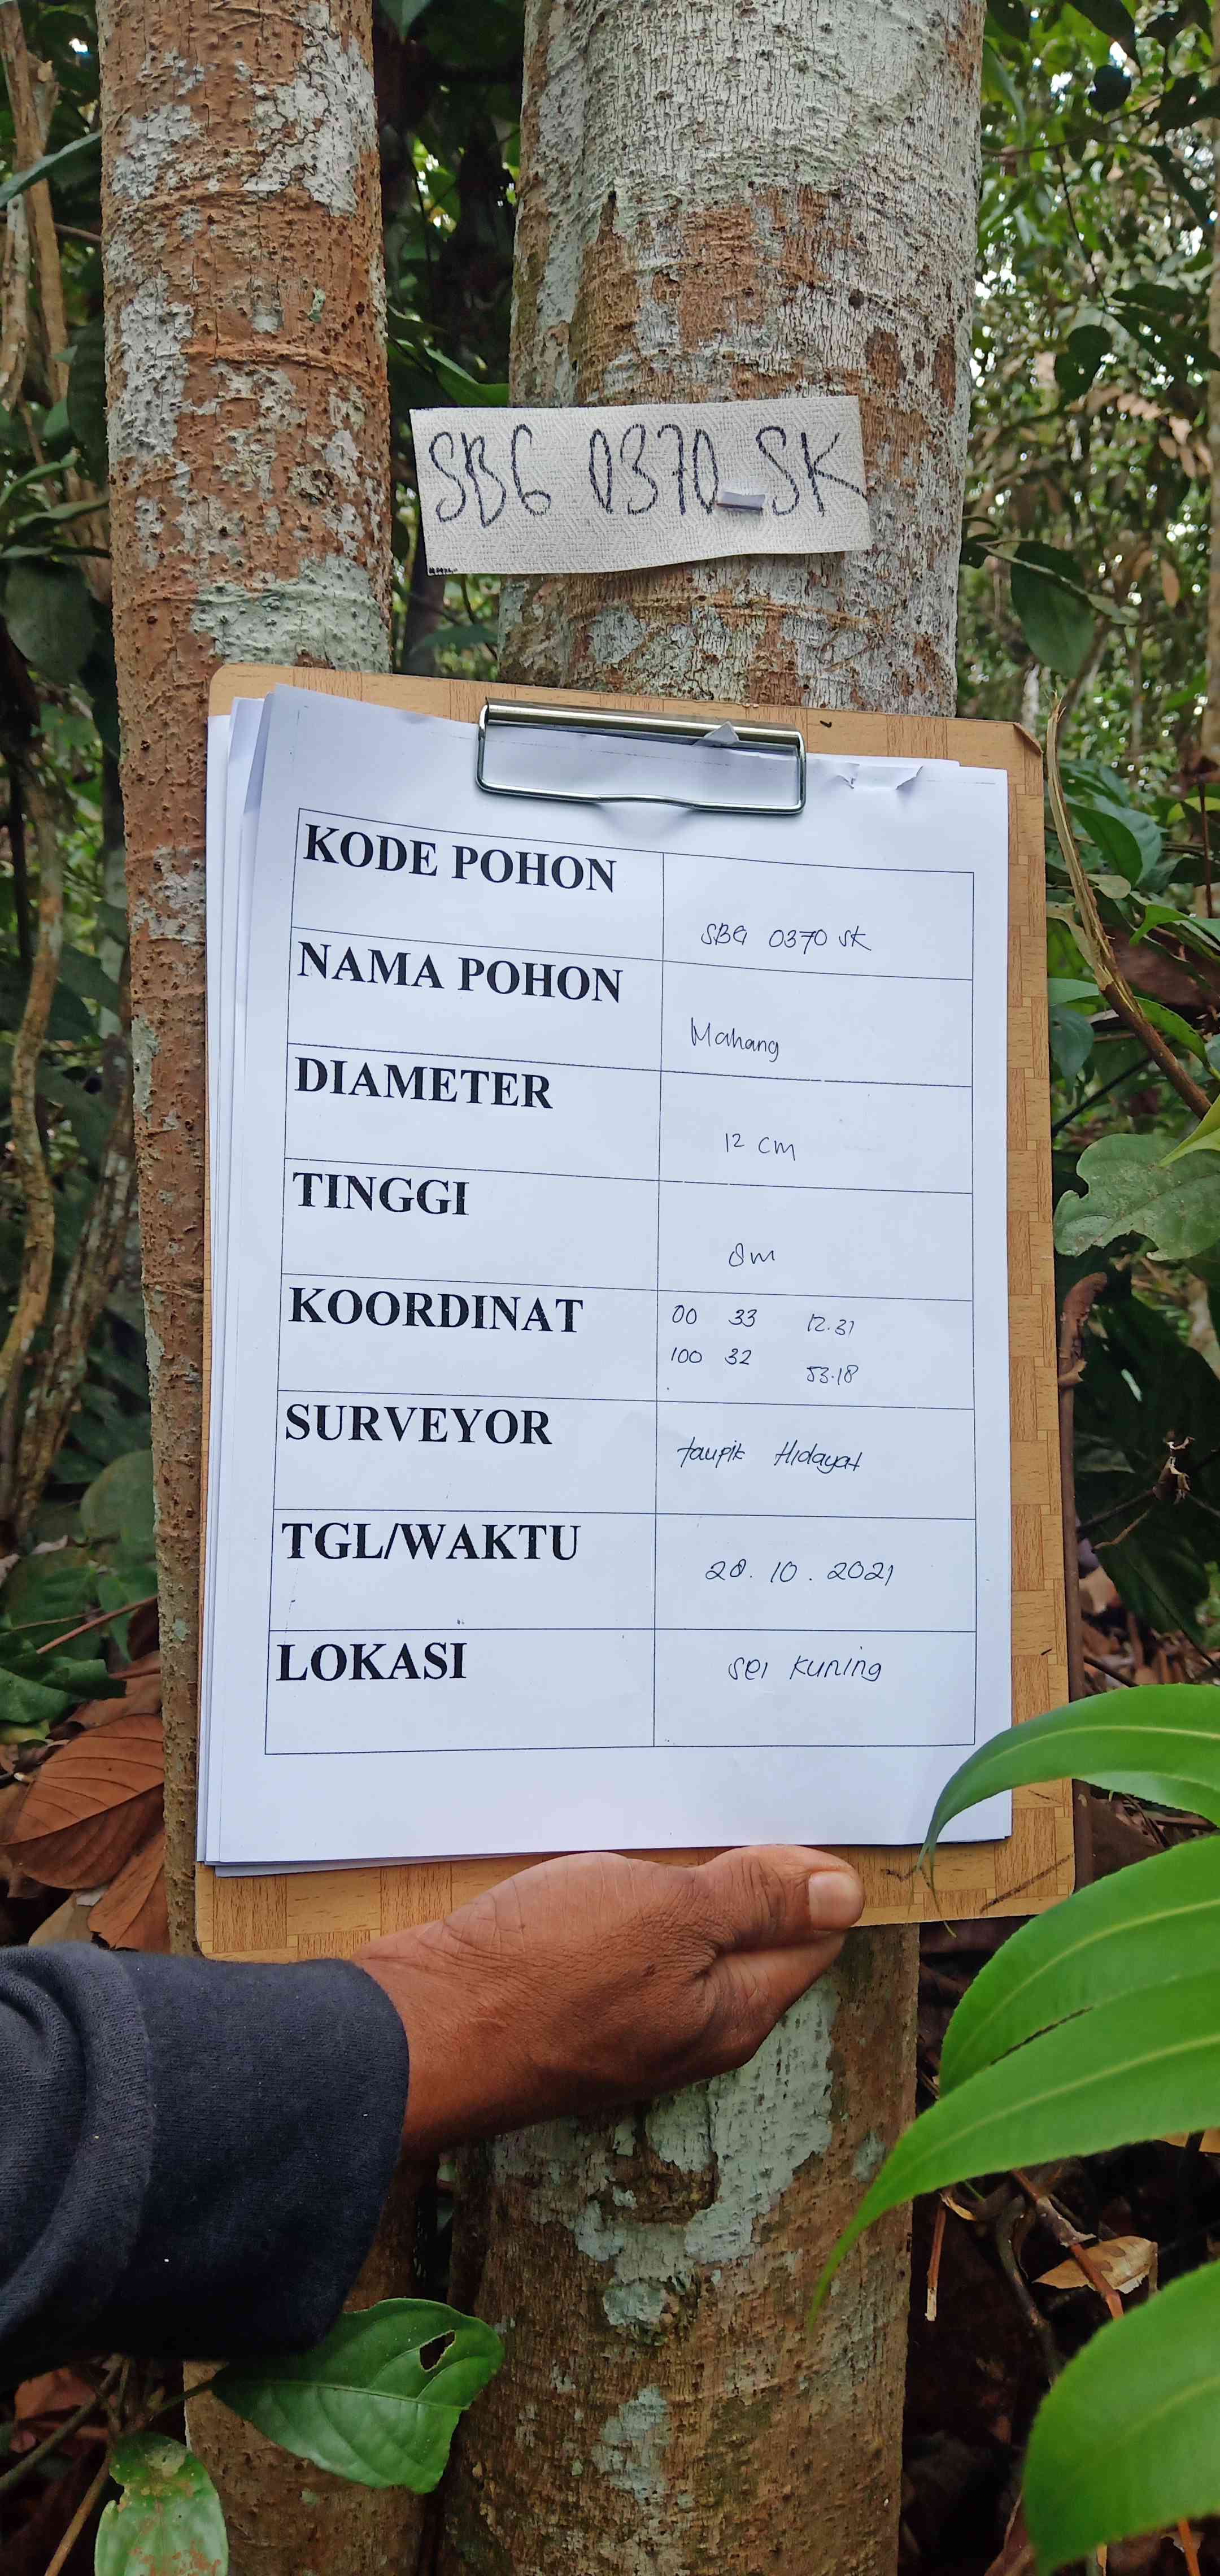 SBG 0370_SK
KODE POHON
SBG 0370 SK
NAMA POHON
Mahang
DIAMETER
12 cm
TINGGI
8m
KOORDINAT
00 33 12.31
100 32 53.18
SURVEYOR
taupik Hidayat
TGL/WAKTU
28.10.2021
LOKASI
sei kuning